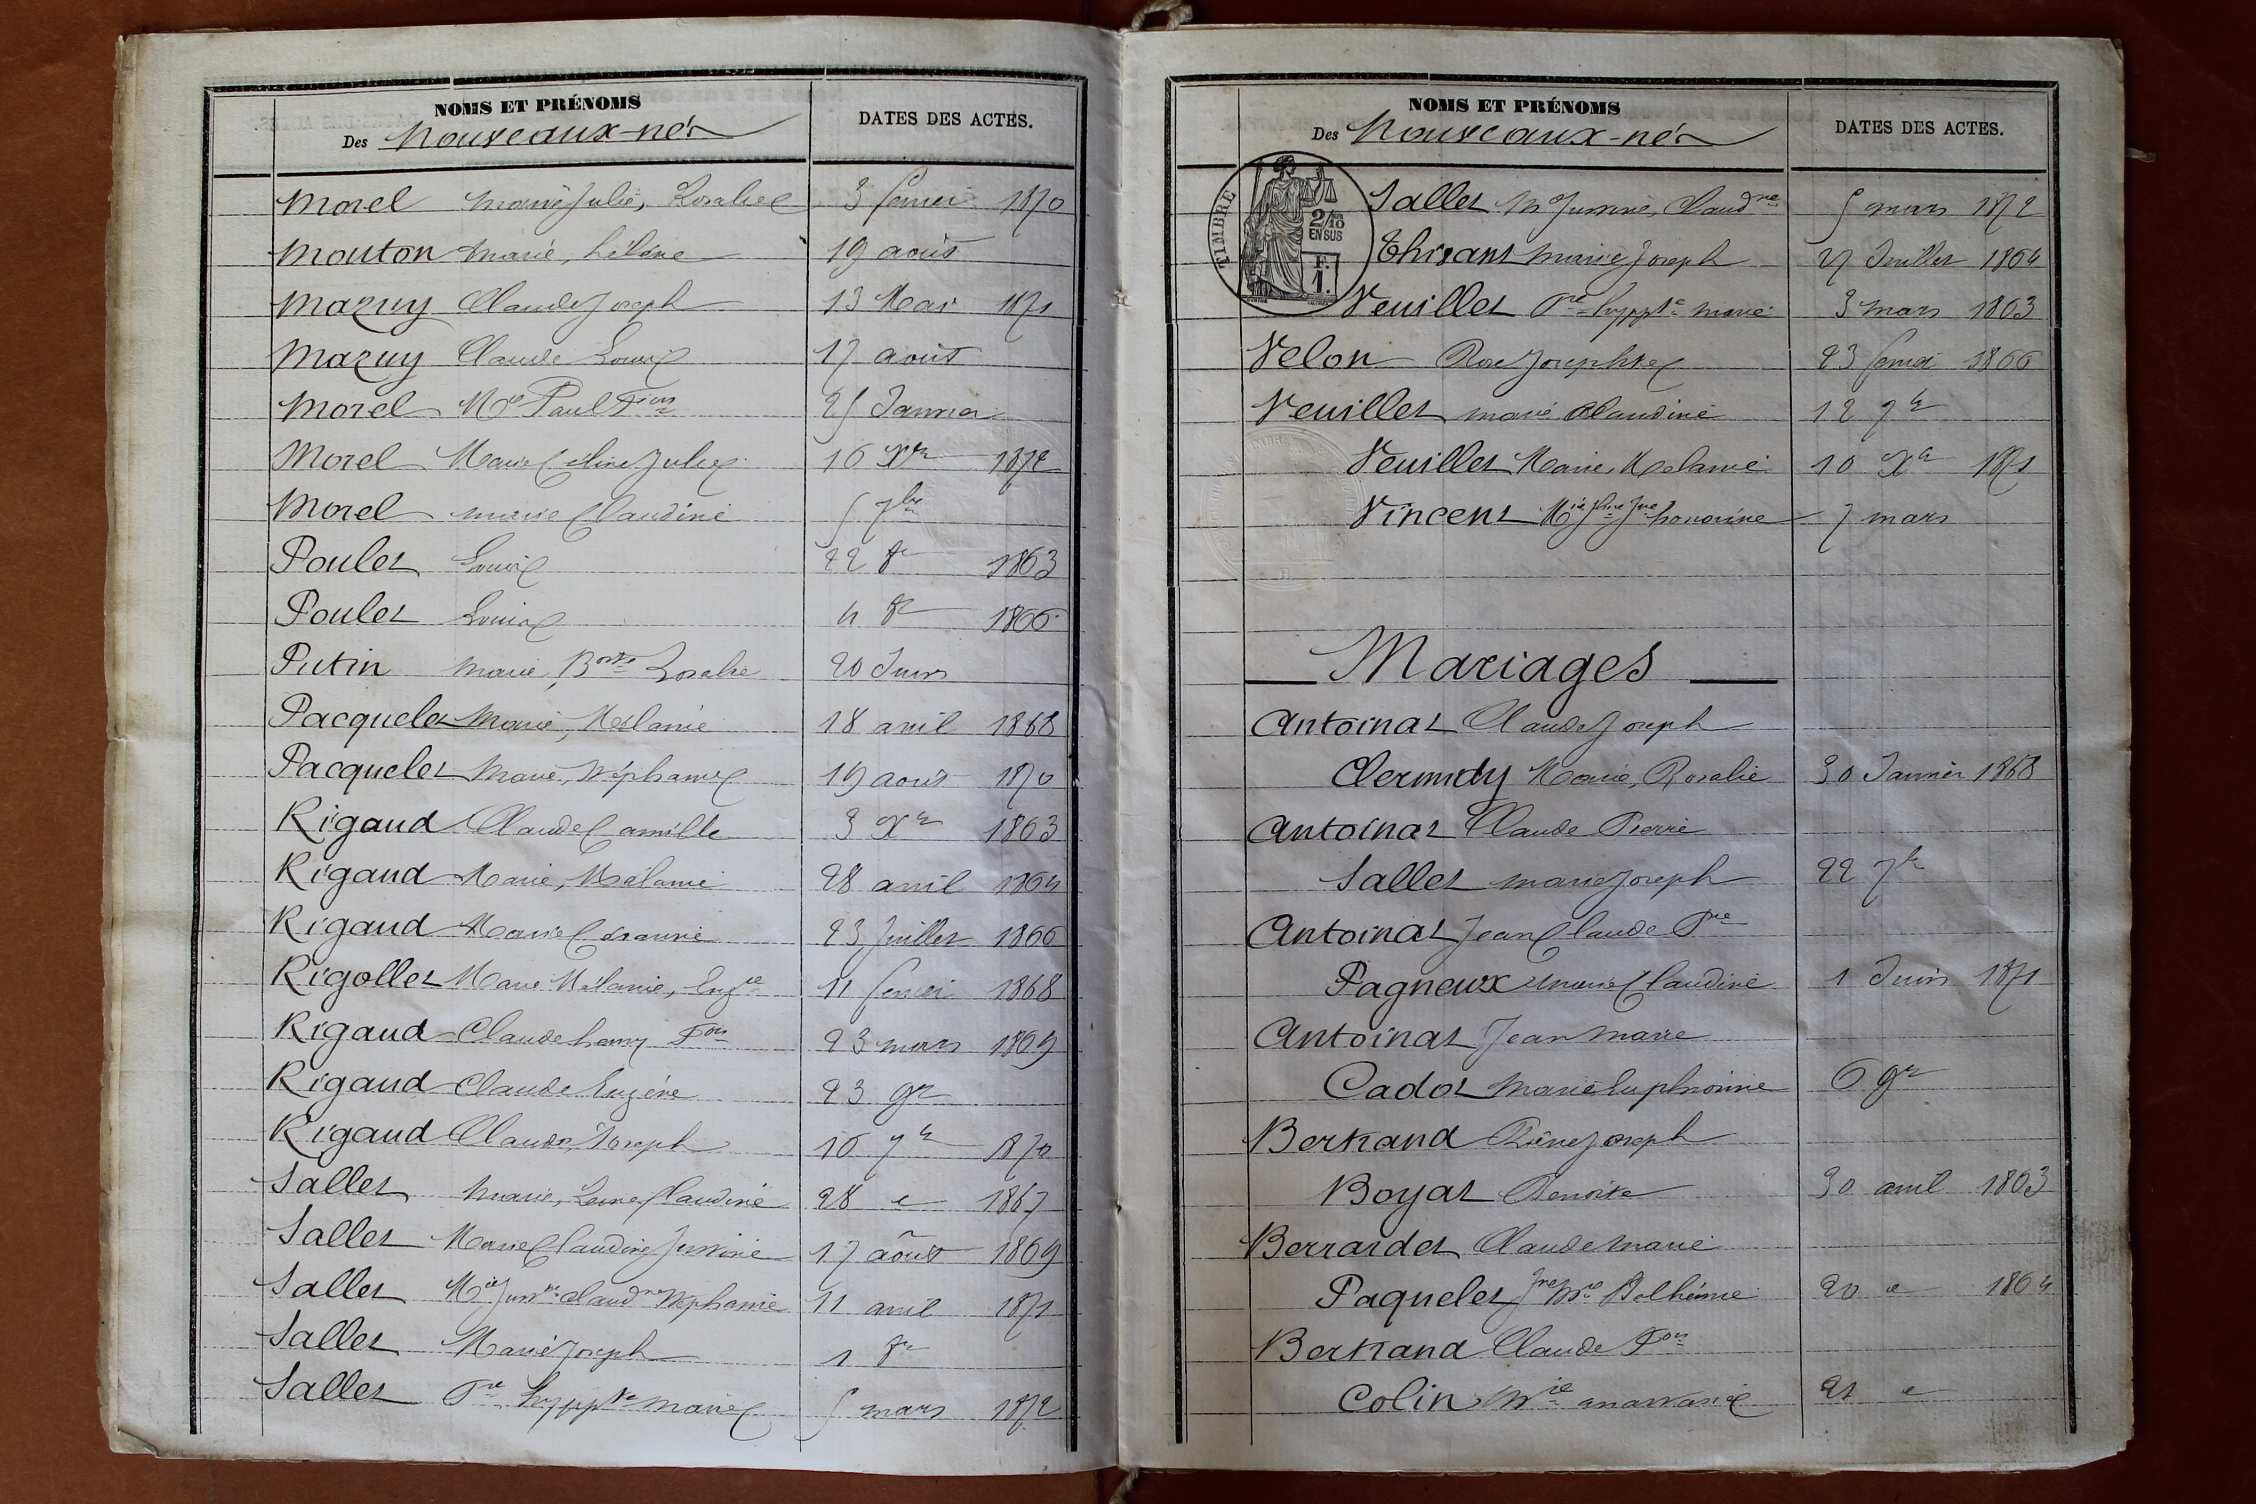 NOMS ET PRÉNOMS
Des Nouveaux-nés
DATES DES ACTES.
Morel Marie Julie, Rosalie 3 février 1870
Mouton Marie, hélène 19 août
Mazuy Claude Joseph 13 Mars 1871
Mazuy Claude Louis 17 août
Morel Mie Paul Fois 25 Janvier
Morel Marie Céline Julie 16 Xbre 1872
Morel marie Claudine 5 7bre
Poulet Louis 22 8e 1863
Poulet Louise 4 8e 1866
Putin Marie, Rosalie 20 Juin
Pacquelet Marie, Mélanie 18 avril 1868
Pacquelet Marie, Stéphanie 19 août 1870
Rigaud Claude Camille 3 Xe 1863
Rigaud Marie, Mélanie 28 avril 1864
Rigaud Marie 23 Juillet 1866
Rigollet Marie Mélanie, Eugie 11 février 1868
Rigaud Claude henry Fois 23 mars 1869
Rigaud Claude Eugène 23 9e
Rigaud Claude, Joseph 16 7e 1870
Sallet Marie, Claudine 28 e 1867
Sallet Marie Claudine Justine 17 août 1869
Sallet Mie Justne Claudne Stéphanie 11 avril 1871
Sallet Marie Joseph 1 8e
Sallet Pre hyppte marie 5 mars 1872
NOMS ET PRÉNOMS
Des Nouveaux-nés
DATES DES ACTES.
TIMBRE
2/10
EN SUS
F.
1.
Sallet Me Justine, Claudne 5 mars 1872
Thisant Marie Joseph 27 Juillet 1864
Veuillet Pre hyppte marie 3 mars 1863
Velon Rose Josephte 23 février 1866
Veuillet marie Claudine 12 7e
Veuillet Marie, Mélanie 10 Xe 1871
Vincent Mie honorine 7 mars
Mariages
Antoinat Claude Joseph
Clermidy Marie, Rosalie 30 Janvier 1868
Antoinat Claude Pierre
Sallet marie Joseph 22 7e
Antoinat Jean Claude Pre
Pagneux marie Claudine 1 Juin 1871
Antoinat Jean Marie
Cadot Marie Euphrosine 6 9e
Bertrand René Joseph
Boyat Benoite 30 avril 1863
Berrardet Claude Marie
Paquelet Jne Mie Philhémie 20 e 1864
Bertrand Claude Fois
Colin Mie anastasie 21 e